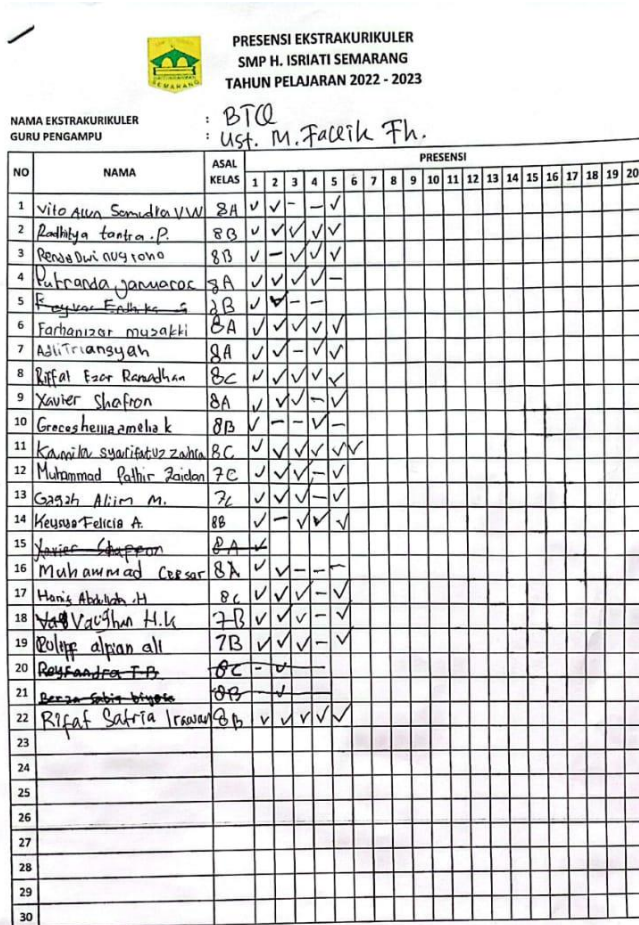 PRESENSI EKSTRAKURIKULER
SMP H. ISRIATI SEMARANG
TAHUN PELAJARAN 2022 - 2023
SEMARANG
NAMA EKSTRAKURIKULER : BTQ
GURU PENGAMPU : Ust. M. Fh.
NO NAMA ASAL KELAS PRESENSI
1 2 3 4 5 6 7 8 9 10 11 12 13 14 15 16 17 18 19 20
1 Vito VW 8A ✓ ✓ - - ✓
2 Radhitya tantra .P. 8B ✓ ✓ ✓ ✓ ✓
3 Dwi nugrono 8B ✓ - ✓ ✓ ✓
4 Putranda januaroc 8A ✓ ✓ ✓ ✓ -
5 ✓ ✓ - -
6 Farhanizar muzakki 8A ✓ ✓ ✓ ✓ ✓
7 Adli Triansyah 8A ✓ ✓ - ✓ ✓
8 Riffat Ezar Ramadhan 8C ✓ ✓ ✓ ✓ ✓
9 Xavier Shafron 8A ✓ ✓ ✓ - ✓
10 amelia k 8B ✓ - - ✓ -
11 Kamila syarifatuz zahra 8C ✓ ✓ ✓ ✓ ✓ ✓
12 Muhammad Fathir Zaidan 7C ✓ ✓ ✓ - ✓
13 Gagah Aliim M. 7C ✓ ✓ ✓ - ✓
14 Felicia A. 8B ✓ - ✓ ✓ ✓
15 Xavier 8A ✓
16 Muhammad 8A ✓ ✓ - - -
17 Hanif Abdullah .H 8C ✓ ✓ ✓ - ✓
18 Vaughan H.k 7B ✓ ✓ ✓ - ✓
19 alpian ali 7B ✓ ✓ ✓ - ✓
20 8C - ✓
21 8B - ✓
22 Rifaf Satria Irawan 8B ✓ ✓ ✓ ✓ ✓
23
24
25
26
27
28
29
30